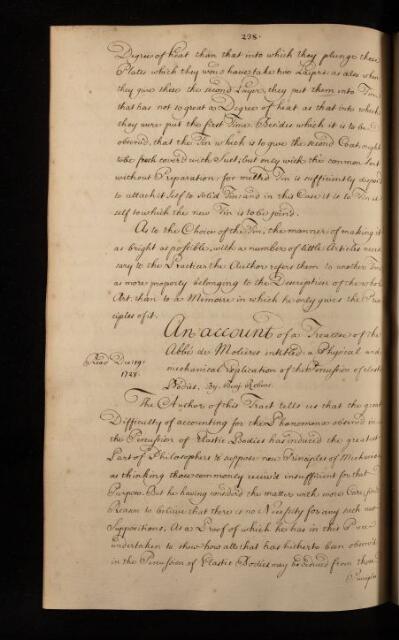 238.
Degree of heat than that into which they plunge these
Plates which they wou'd have take two Layers: as also when
they give these the second Layer, they put them into Tin
that has not so great a Degree of heat as that into which
they were put the first Time. Besides which it is to be
observed, that the Tin which is to give the second Coat, ought
to be fresh cover'd with Suet; but only with the common Suet
without Preparation: for melted Tin is sufficiently dispos'd
to attach it self to solid Tin: and in this Case it is to Tin it
self to which the new Tin is to be join'd.
As to the Choice of the Tin, the manner of making it
as bright as possible, with a number of little Articles neces
sary to the Practice the Author refers them to another Time
as more properly belonging to the Description of the whole
Art, than to a Memoire in which he only gives the Prin
ciples of it.
An account of a Treatise of the
Read Dec. 19.
Abbé de Molieres intitled: a Physical and
1728.
mechanical Explication of the Percussion of elastic
Bodies, By Benj. Robins.
The Author of this Tract tells us that the great
Difficulty of accounting for the Phænomena observed in
the Percussion of Elastic Bodies has induced the greatest
Part of Philosophers to suppose new Principles of Mechanics
as thinking those commonly receiv'd insufficient for that
Purpose. But he having consider'd the matter with more Care, finds
Reason to believe that there is no Necessity for any such new
Suppositions; As a Proof of which he has in this Piece
undertaken to shew how all that has hitherto been observ'd
in the Percussion of Elastic Bodies may be deduced from those
Principles